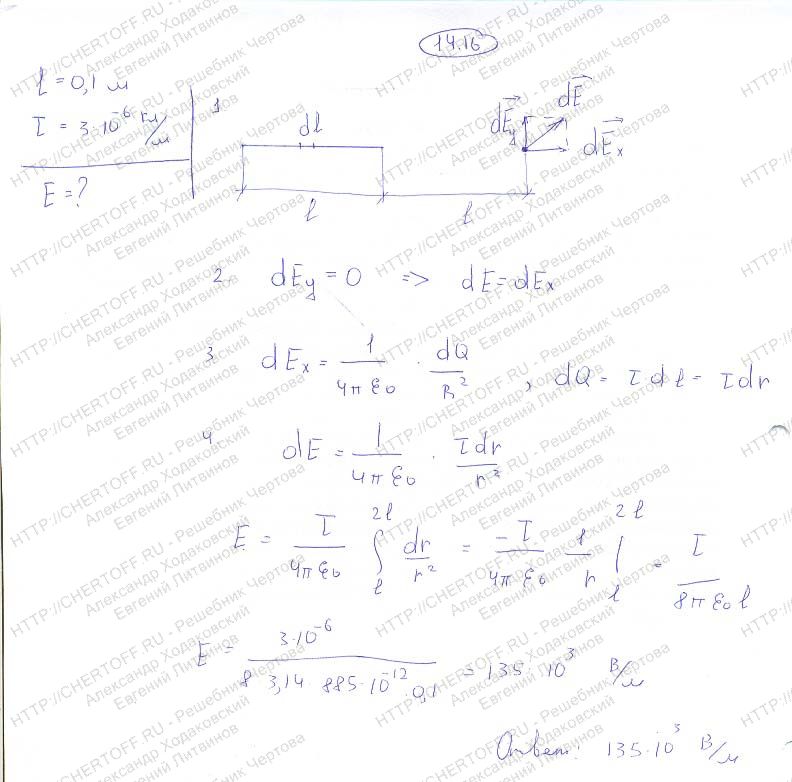 14.16
l = 0,1 м
τ = 3·10⁻⁶ Кл/м
E = ?
1
dl
dE⃗y
dE⃗
dE⃗x
A
l
l
2. dEy = 0 => dE = dEx
3 dEx = 1/4πε₀ · dQ/R², dQ = τ dl = τ dr
4 dE = 1/4πε₀ · τ dr/r²
E = τ/4πε₀ ∫ₗ²ˡ dr/r² = -τ/4πε₀ 1/r |ₗ²ˡ = τ/8πε₀l
E = 3·10⁻⁶/8 3,14 885·10⁻¹² 0,1 = 135·10³ В/м
Ответ: 135·10³ В/м
HTTP://CHERTOFF.RU - Решебник Чертова
Александр Ходаковский
Евгений Литвинов